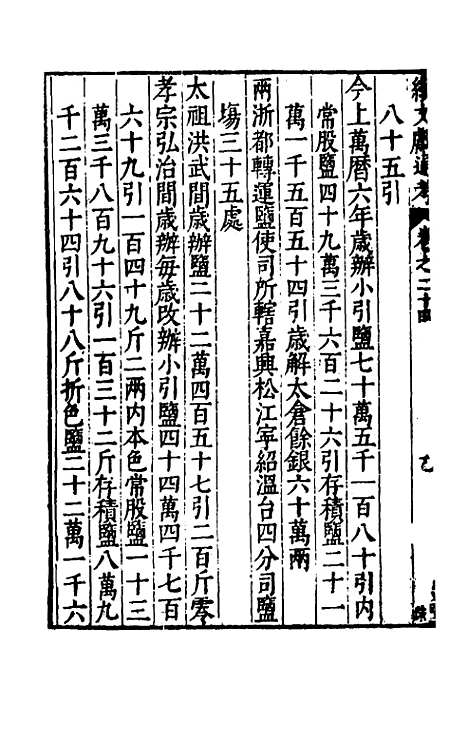 續文獻通考 卷之二十四
八十五引
今上萬曆六年歲辦小引鹽七十萬五千一百八十引內
常股鹽四十九萬三千六百二十六引存積鹽二十一
萬一千五百五十四引歲解太倉餘銀六十萬兩
兩浙都轉運鹽使司所轄嘉興松江寧紹溫台四分司鹽
場三十五處
太祖洪武間歲辦鹽二十二萬四百五十七引二百斤零
孝宗弘治間歲辦每歲改辦小引鹽四十四萬四千七百
六十九引一百四十九斤二兩內本色常股鹽一十三
萬三千八百九十六引一百三十二斤存積鹽八萬九
千二百六十四引八十八斤折色鹽二十二萬一千六